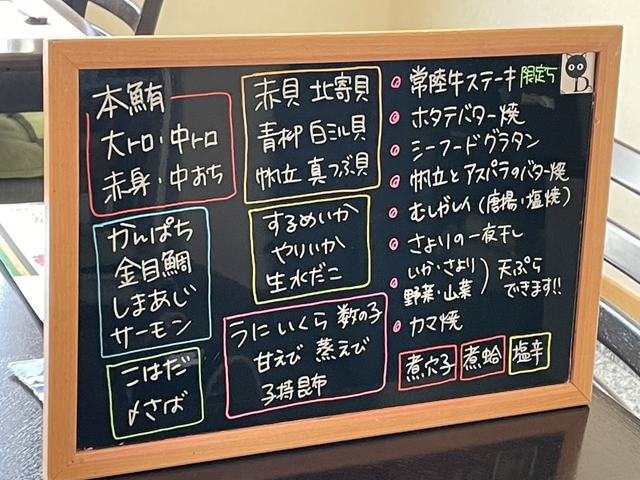 本鮪
大トロ・中トロ
赤身・中おち
かんぱち
金目鯛
しまあじ
サーモン
こはだ
〆さば
赤貝 北寄貝
青柳 白ミル貝
帆立 真つぶ貝
するめいか
やりいか
生水だこ
うに いくら 数の子
甘えび 蒸えび
子持昆布
常陸牛ステーキ 限定5
ホタテバター焼
シーフードグラタン
帆立とアスパラのバター焼
むしがれい (唐揚・塩焼)
さよりの一夜干し
いか・さより
野菜・山菜
) 天ぷら
できます!!
カマ焼
煮穴子 煮蛤 塩辛
D.